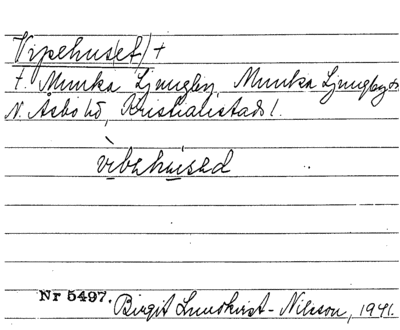 Vipehus(et) +
f. Munka Ljungby, Munka Ljungby sn
N. Åsbo hd, Kristianstads l.
vìbehuised
Nr 5497. Birgit Lundkvist-Nilsson, 1941.